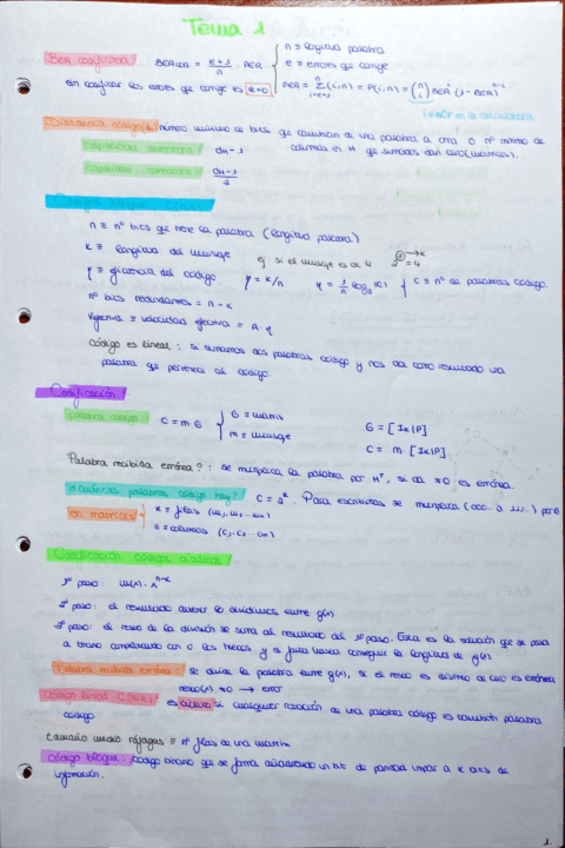 Tema 1
BER codificado BER cod = (e+1)/n · PER { n ≡ longitud palabra
e ≡ errores que corrige
sin codificar los errores que corrige es e=0 PER = Σ (i,n) = P(i,n) = (n i) BER^i (1-BER)^n-i
en la calculadora
Distancia código(d): número mínimo de bits que cambian de una palabra a otra o nº mínimo de
columnas en H que sumadas dan cero (matrices).
Capacidad detectora: dm-1
Capacidad correctora: (dm-1)/2
Códigos bloque C(n,k)
n ≡ nº bits que tiene la palabra (longitud palabra)
k ≡ longitud del mensaje ej: si el mensaje es de 4 → k = 4
η ≡ eficiencia del código η = k/n η = 1/n log₂(C) { C ≡ nº de palabras código.
nº bits redundantes = n-k
Vefectiva ≡ velocidad efectiva = R·η
Código es lineal: si sumamos dos palabras código y nos da como resultado una
palabra que pertenece al código.
Codificación
palabra código: C = m·G { G ≡ matriz
m ≡ mensaje G = [Ik|P]
C = m·[Ik|P]
Palabra recibida errónea?: se multiplica la palabra por Hᵀ, si da ≠0 es errónea.
¿Cuántas palabras código hay? C = 2ᵏ. Para escribirlas se multiplica (000.. a 111..) por G
en matrices { k = filas (m₁, m₂ ... mn)
n = columnas (c₁, c₂ ... cn)
Codificación códigos cíclicos
1º paso: m(x)·x^n-k
2º paso: el resultado anterior lo dividimos entre g(x)
3º paso: el resto de la división se suma al resultado del 1º paso. Esta es la solución que se pasa
a binario completando con 0 los huecos y si falta hasta conseguir la longitud de g(x)
Palabra recibida errónea: se divide la palabra entre g(x), si el resto es distinto de cero es errónea
resto(x) ≠0 → error
Código lineal C(n,k) es cíclico si cualquier rotación de una palabra código es también palabra
código
tamaño ráfagas ≡ nº filas de una matriz
Código bloque: código binario que se forma añadiendo un bit de paridad impar a k bits de
información.
1.